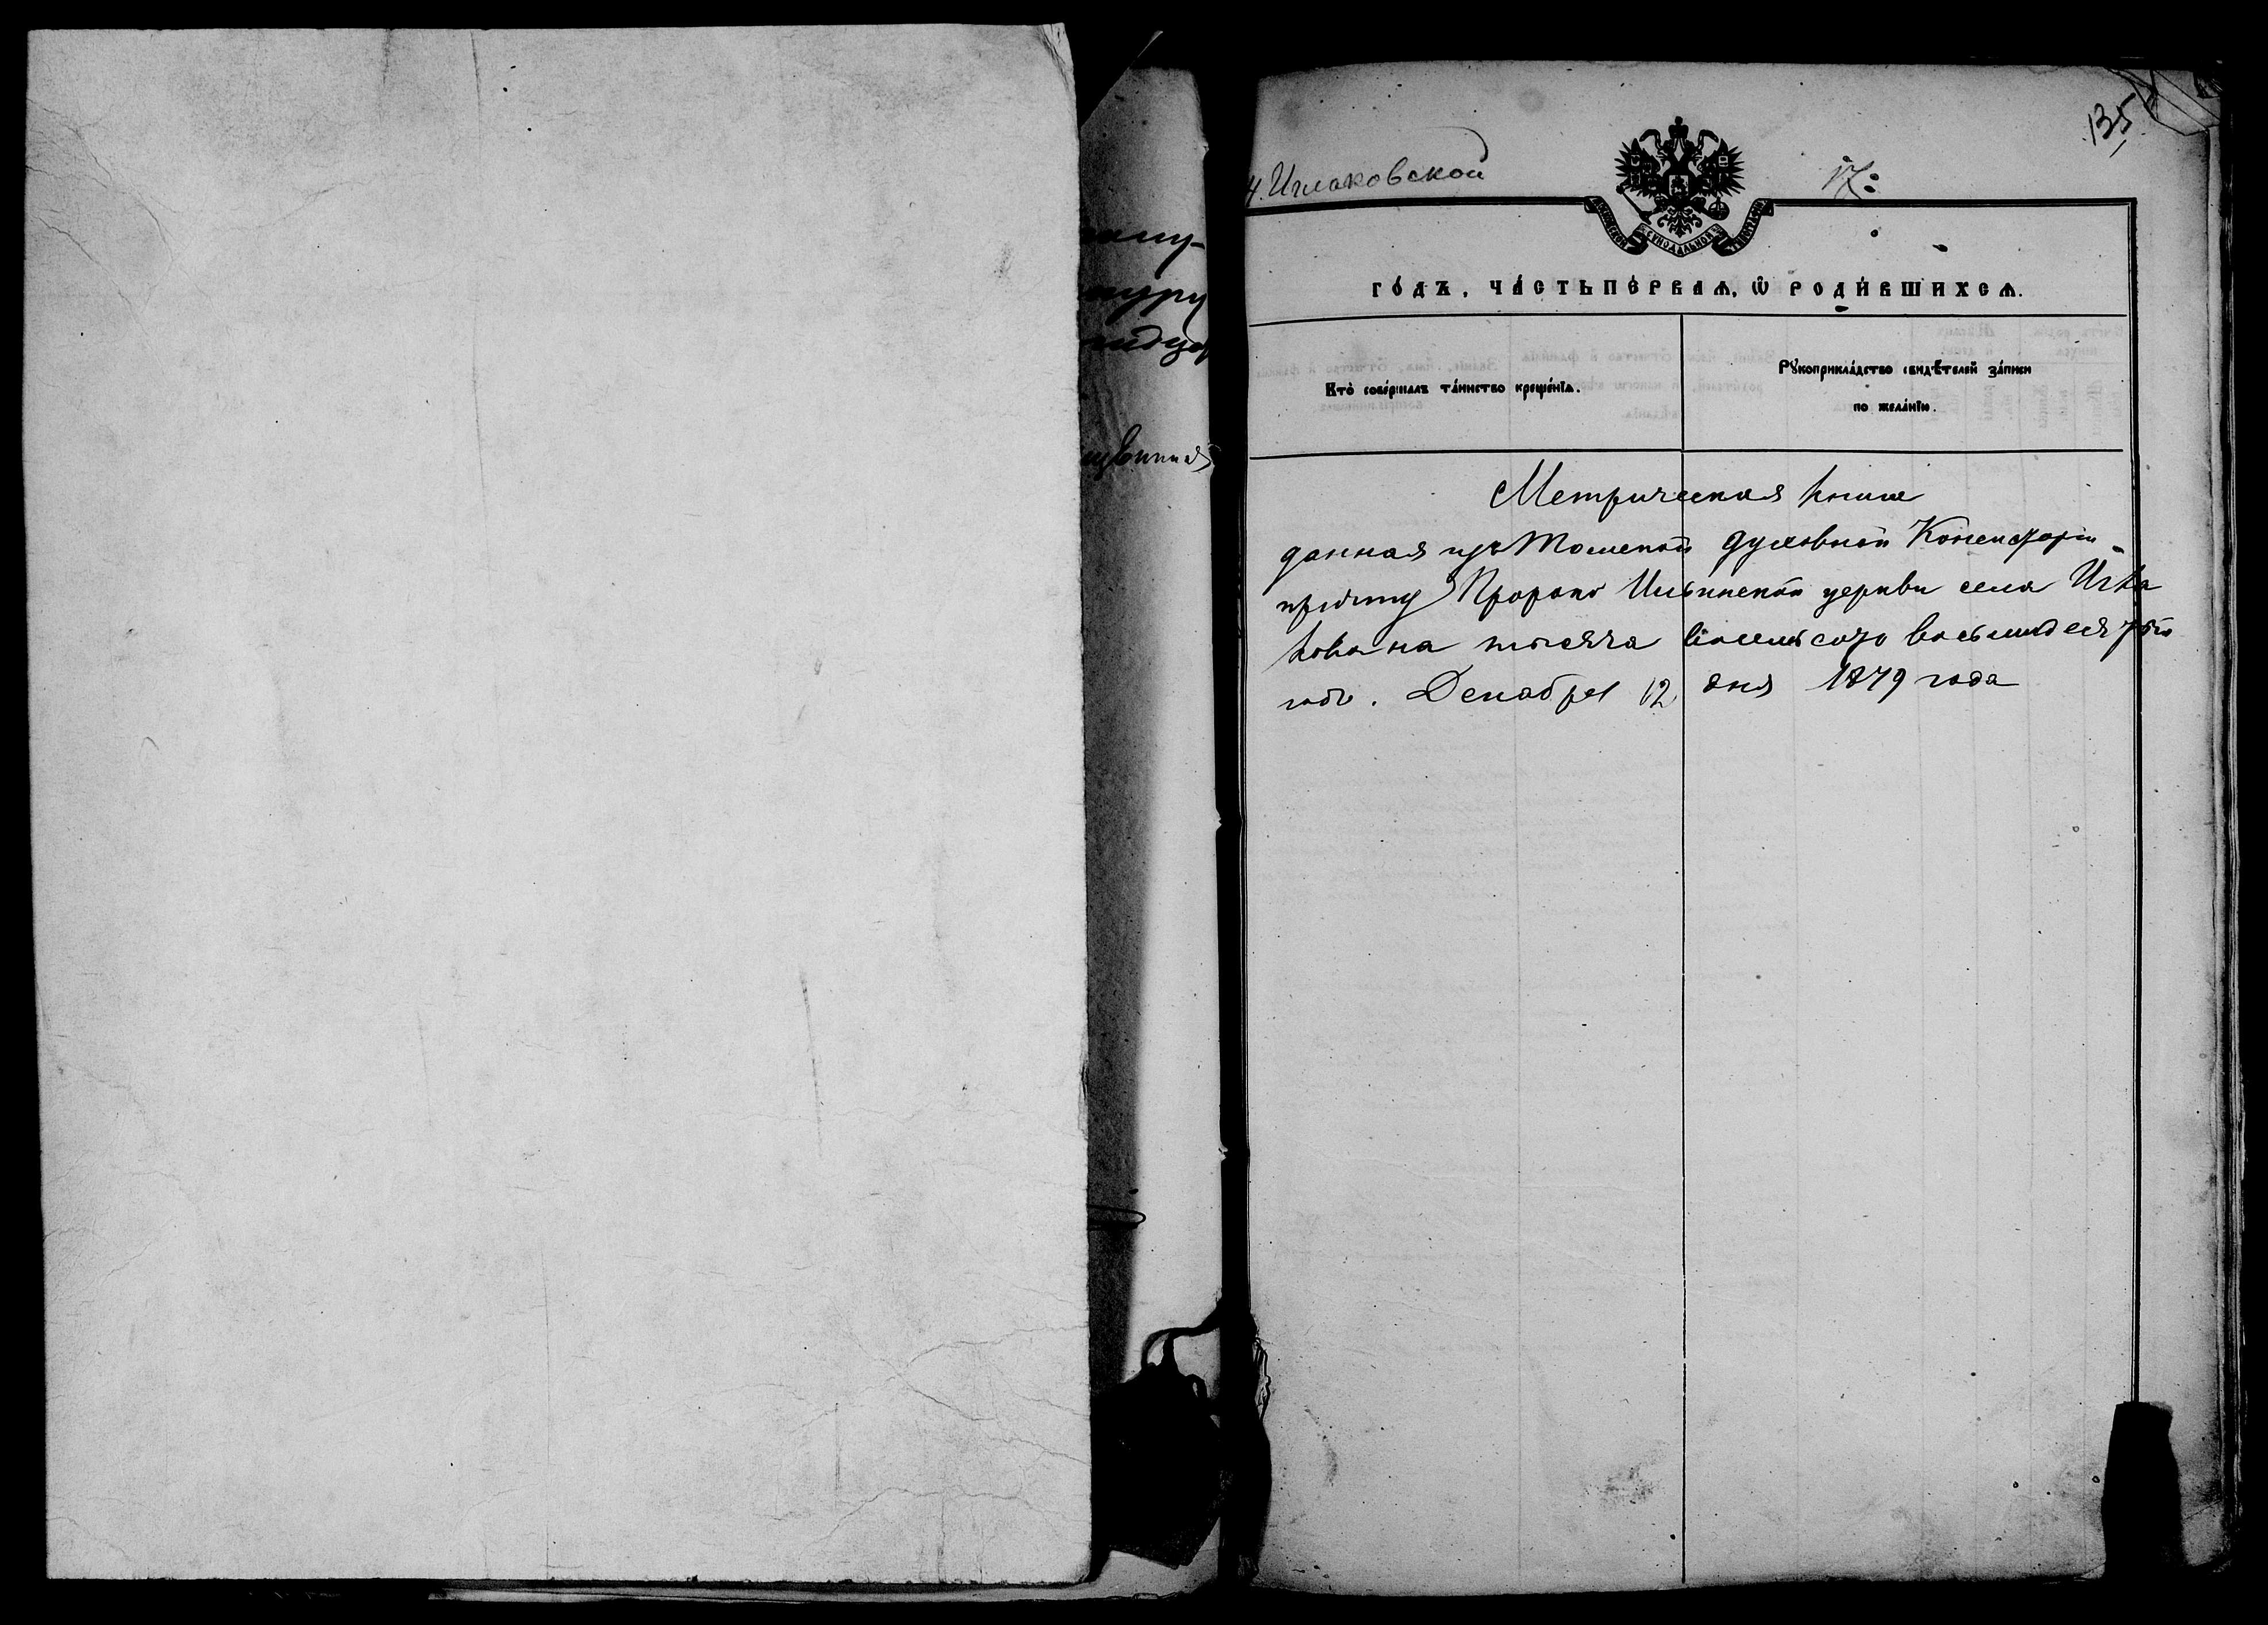 135
Иглаковской
17:
МОСКОВСКОЙ СѴНОДАЛЬНОЙ ТИПОГРАФІИ
ГО́ДЪ, ЧА́СТЬ ПЕ́РВАѦ, Ѽ РОДИ́ВШИХСѦ.
Кто̀ соверша́лъ та́инство креще́нїѧ.
Рꙋкоприкла́дство свидѣ́телей за́писи
по жела́нїю.
Метрическая книга
данная изъ Томской Духовной Консисторіи
причту Пророко Ильинской церкви села Игла
кова на тысяча восемьсотъ восьмидесятый
годъ. Декабря 12 дня 1879 года